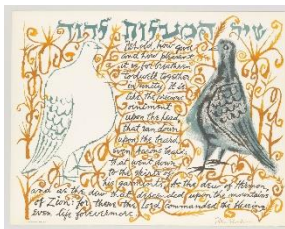 שיר המעלות לדוד
Behold, how good
and how pleasant
it is for brethren
to dwell together
in unity. It is
like the precious
ointment
upon the head,
that ran down
upon the beard,
even Aaron's beard:
that went down
to the skirts of
his garments; As the dew of Hermon,
and as the dew that descended upon the mountains
of Zion: for there the Lord commanded the blessing
even life forevermore.